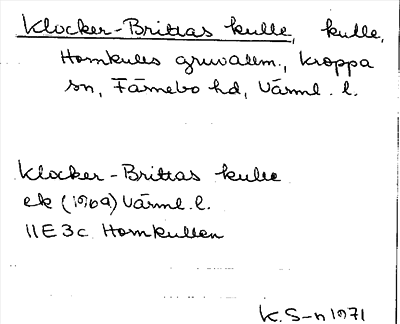 Klocker-Brittas kulle, kulle,
Hornkulls gruvallm., Kroppa
sn, Färnebo hd, Värml. l.
Klocker-Brittas kulle
ek (1969) Värml. l.
11E3c Hornkullen
K.S-n 1971